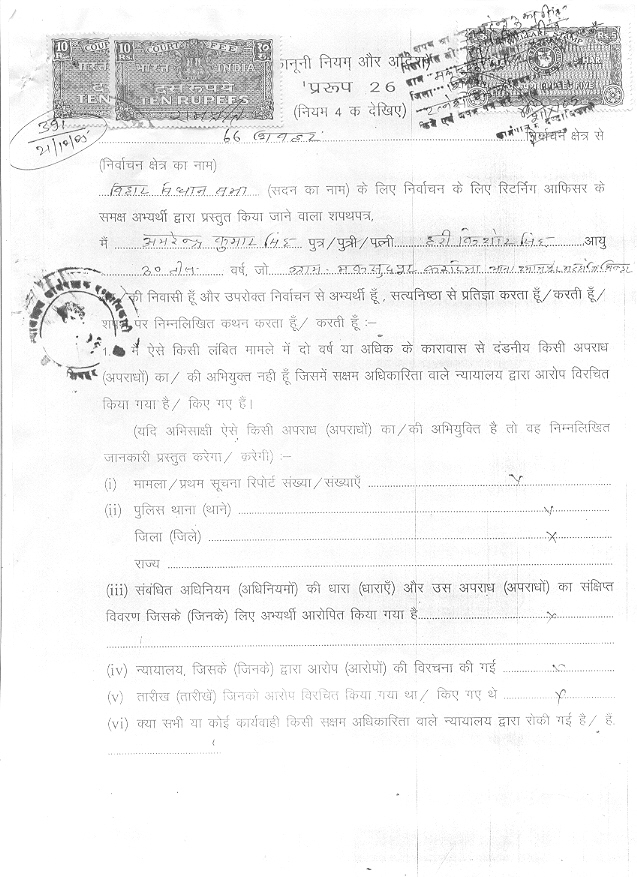 10 Rs.
COURT FEE
10 Rs.
COURT FEE
१०रु.
भारत INDIA
दस रुपये
TEN RUPEES
कानूनी नियम और आदेश
'प्ररूप 26
(नियम 4 क देखिए)
391
21/10/05
66 निर्वाचन क्षेत्र से
(निर्वाचन क्षेत्र का नाम)
बिहार विधान सभा (सदन का नाम) के लिए निर्वाचन के लिए रिटर्निंग आफिसर के
समक्ष अभ्यर्थी द्वारा प्रस्तुत किया जाने वाला शपथपत्र,
मैं अमरेन्द्र कुमार सिंह पुत्र/पुत्री/पत्नी हरी किशोर सिंह आयु
30 तीस वर्ष, जो ग्राम-
की निवासी हूँ और उपरोक्त निर्वाचन से अभ्यर्थी हूँ, सत्यनिष्ठा से प्रतिज्ञा करता हूँ/करती हूँ/
शपथ पर निम्नलिखित कथन करता हूँ/ करती हूँ :–
1. मैं ऐसे किसी लंबित मामले में दो वर्ष या अधिक के कारावास से दंडनीय किसी अपराध
(अपराधों) का/ की अभियुक्त नही हूँ जिसमें सक्षम अधिकारिता वाले न्यायालय द्वारा आरोप विरचित
किया गया है/ किए गए हैं।
(यदि अभिसाक्षी ऐसे किसी अपराध (अपराधों) का/की अभियुक्ति है तो वह निम्नलिखित
जानकारी प्रस्तुत करेगा/ करेगी) :–
(i) मामला/प्रथम सूचना रिपोर्ट संख्या/संख्याएँ x
(ii) पुलिस थाना (थाने) x
जिला (जिले) x
राज्य
(iii) संबंधित अधिनियम (अधिनियमों) की धारा (धाराएँ) और उस अपराध (अपराधों) का संक्षिप्त
विवरण जिसके (जिनके) लिए अभ्यर्थी आरोपित किया गया है x
(iv) न्यायालय, जिसके (जिनके) द्वारा आरोप (आरोपों) की विरचना की गई x
(v) तारीख (तारीखें) जिनको आरोप विरचित किया गया था/ किए गए थे x
(vi) क्या सभी या कोई कार्यवाही किसी सक्षम अधिकारिता वाले न्यायालय द्वारा रोकी गई है/ हैं